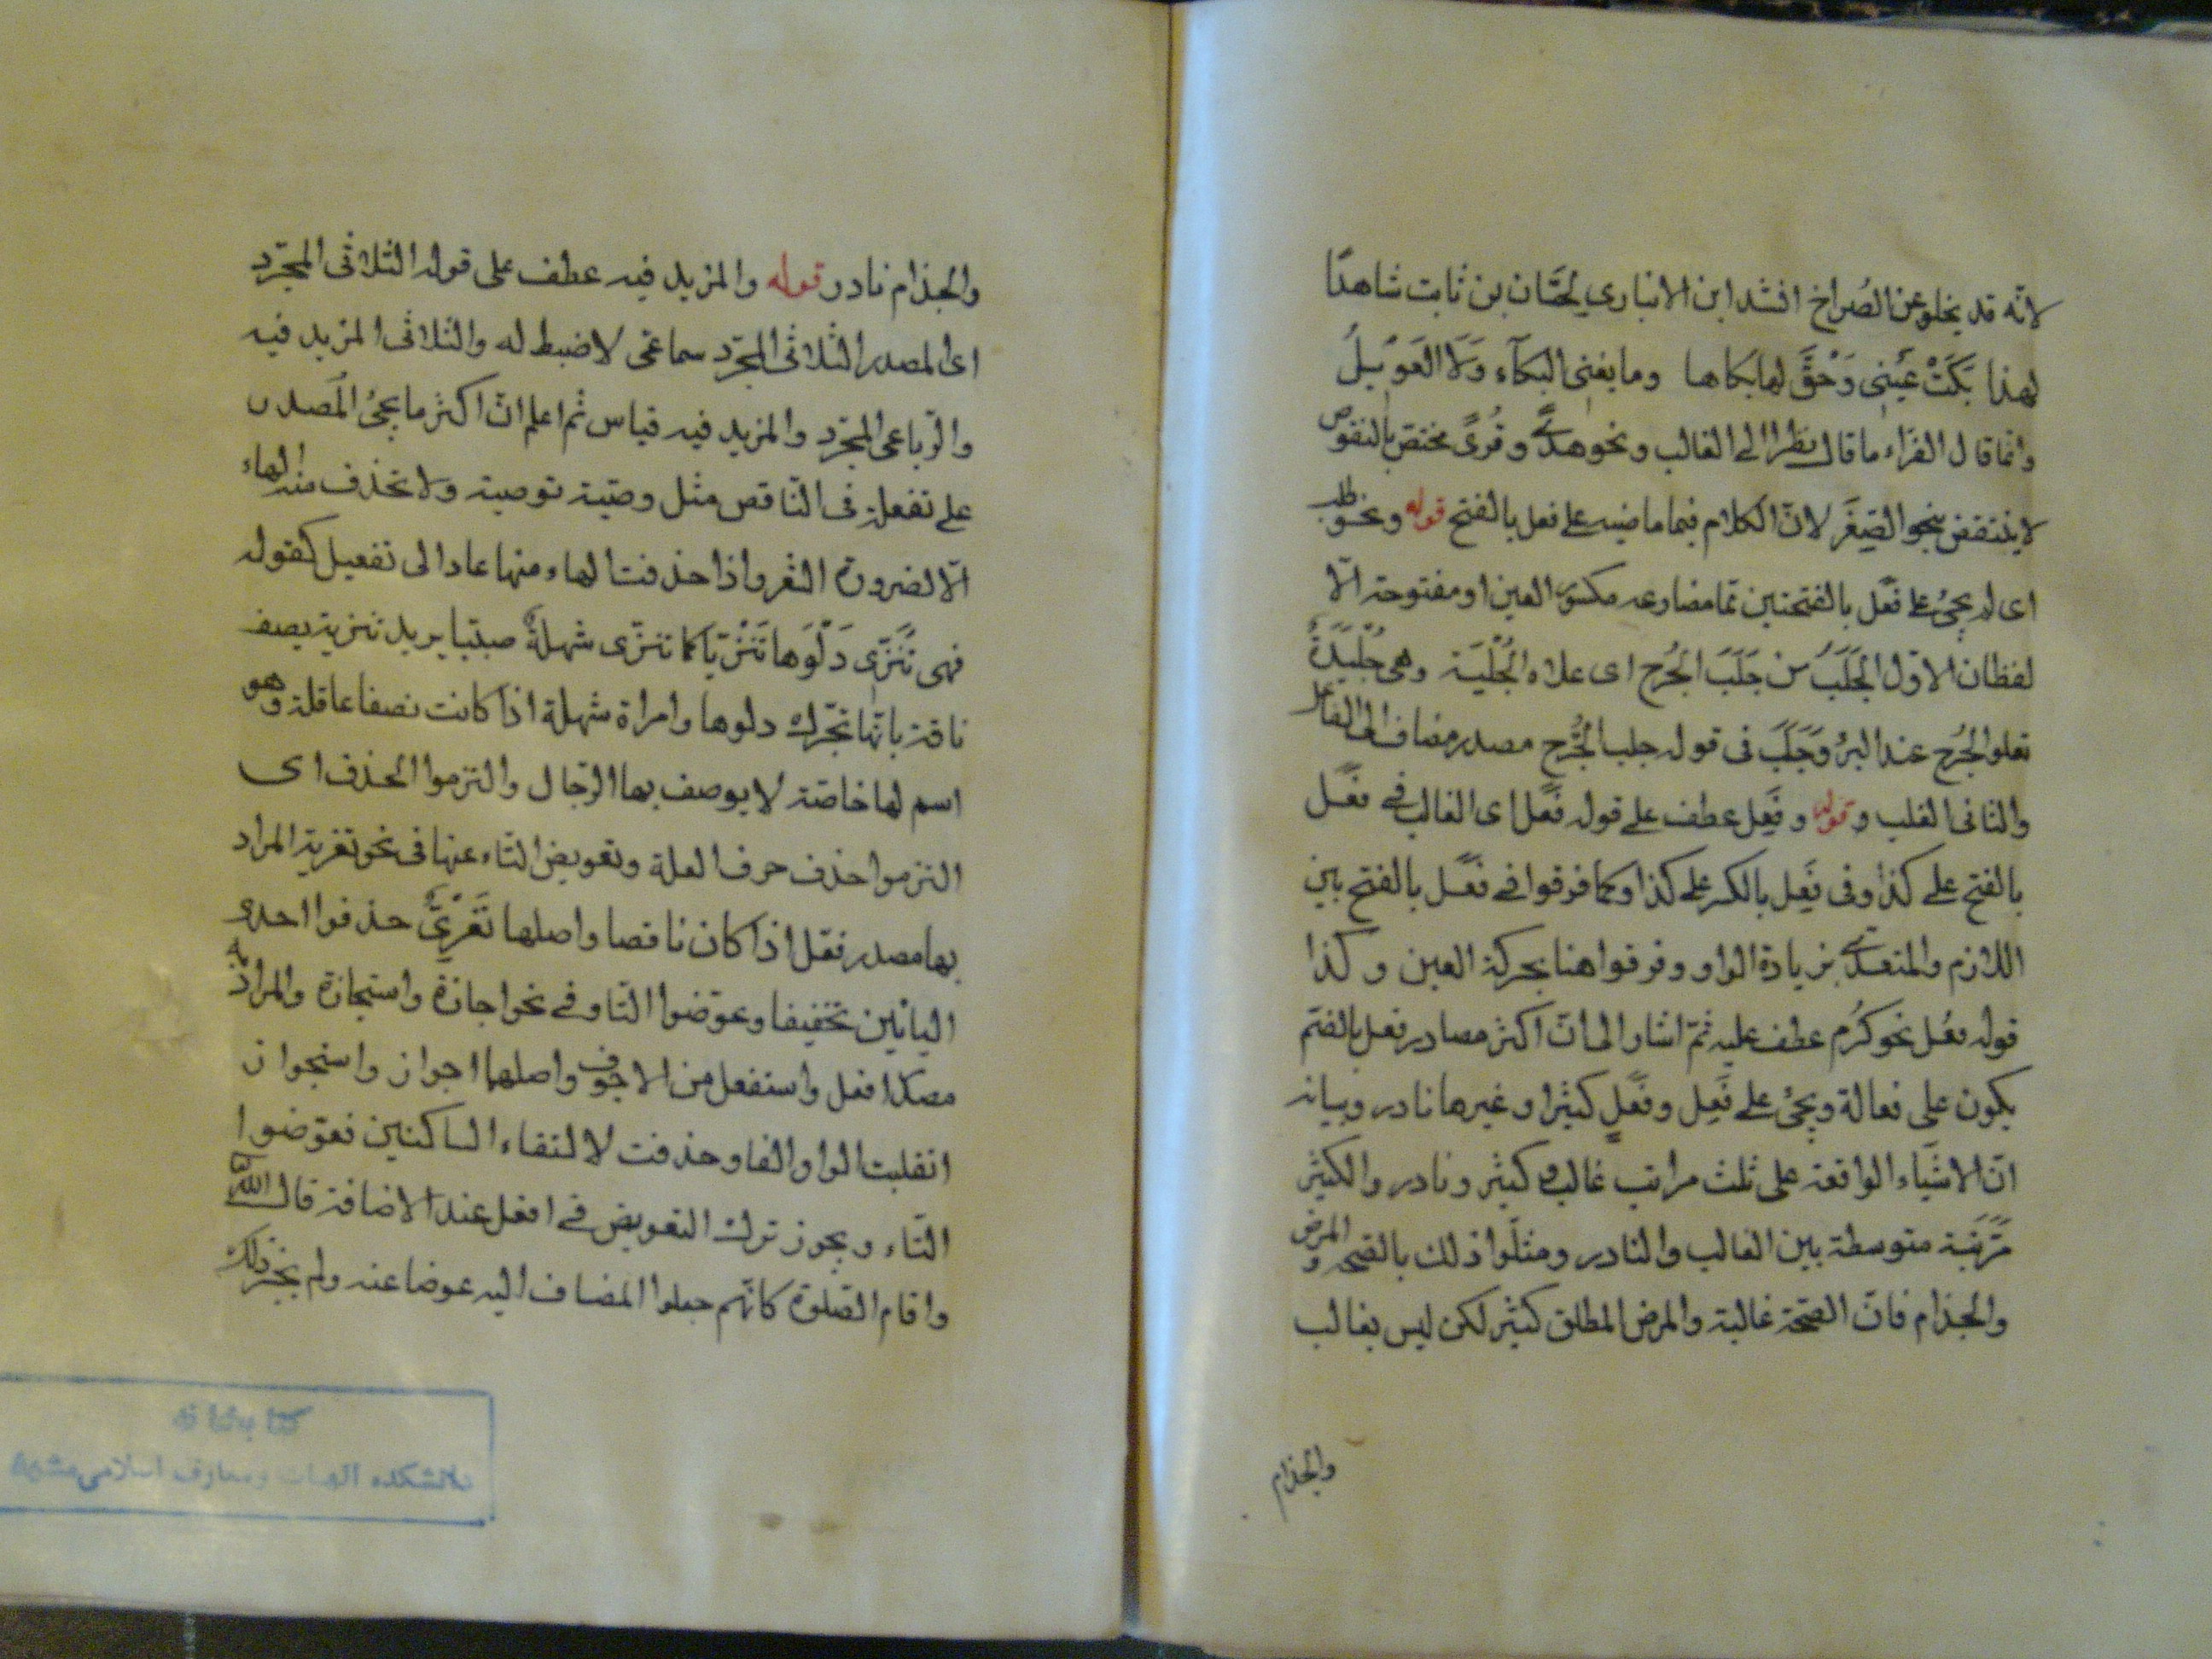 لانّه قد يخلو عن الصُراخ انشد ابن الانباري لحسّان بن ثابت شاهدًا
لهذا بَكَتْ عَيْنِى وَحُقَّ لها بكاها وما يغنى البكآء وَلَا العَوِيلُ
وانما قال الفرّاء ما قال نظرا الى الغالب ونحو هدىً وقُرىً مختص بالنقوص
لا ينتقض بنحو الصِغَر لانّ الكلام فيما ماضيه على فعل بالفتح قوله ونحو طلب
اى لم يجئ على فَعَل بالفتحتين ممّا مضارعه مكسور العين او مفتوحة الّا
لفظان الاوّل الجَلَبُ من جَلَبَ الجُرح اى علاه الجُلْبَة وهى جُلَيْدَةٌ
تعلو الجُرح عند البرُء وَجَلَبَ فى قوله جلب الجُرح مصدر مضاف الى الفاعل
والثانى الغلب وقوله وفَعِل عطف على قوله فَعَل اى الغالب فى فعَل
بالفتح على كذا وفى فَعِل بالكسر على كذا وكما فرقوا فى فعَل بالفتح بين
اللازم والمتعدّى بزيادة الواو وفرقوا هنا بحركة العين وكذا
قوله فعُل نحو كرُم عطف عليه ثمّ اشار الى انّ اكثر مصادر فعل بالضم
يكون على فعالة ويجئ على فَعِل وفَعَلٍ كثيرا وغيرها نادر وبيانه
انّ الاشياء الواقعة على ثلث مراتب غالب وكثير ونادر والكثير
مَرْتَبَة متوسطة بين الغالب والنادر ومثلّوا ذلك بالصحة والمرض
والجذام فانّ الصحّة غالبة والمرض المطلق كثير لكن ليس بغالب
والجذام
والجذام نادر قوله والمزيد فيه عطف على قوله الثلاثى المجرّد
اى المصدر الثلاثى المجرّد سماعى لا ضبط له والثلاثى المزيد فيه
والرّباعى المجرّد والمزيد فيه قياس ثم اعلم انّ اكثر ما يجئ المصدر
على تفعلة فى النّاقص مثل وصّية توصية ولا تحذف منه الهاء
الّا لضرورة الشعر واذا حذفت الهاء منها عاد الى تفعيل كقوله
فهى تُنَزّى دَلْوَها تَنْزيّا كما تنزّى شهلةٌ صبيّا يريد تنزية يصف
ناقة بانّها تحرّك دلوها وامراة شهلة اذا كانت نصفا عاقلة وهو
اسم لها خاصّة لا يوصف بها الرّجال والتزموا الحذف اى
التزموا حذف حرف العلة وتعويض التاء عنها فى نحو تعزية المراد
بها مصدر فعّل اذا كان ناقصا واصلها تَعْزِىٌّ حذفوا احدى
اليائين تخفيفا وعوّضوا التا وفى نحو اجازة واستجازة والمراد به
مصدرا افعل واستفعل من الاجوف واصلهما اجواز واستجواز
انقلبت الواو الفا وحذفت لالتقاء الساكنين فعوّضوا
التّاء ويجوز ترك التعويض فى افعل عند الاضافة قال الله
واقام الصّلوة كانّهم جعلوا المضاف اليه عوضا عنه ولم يجز ذلك
كتابخانه
دانشكده الهيات ومعارف اسلامى مشهد